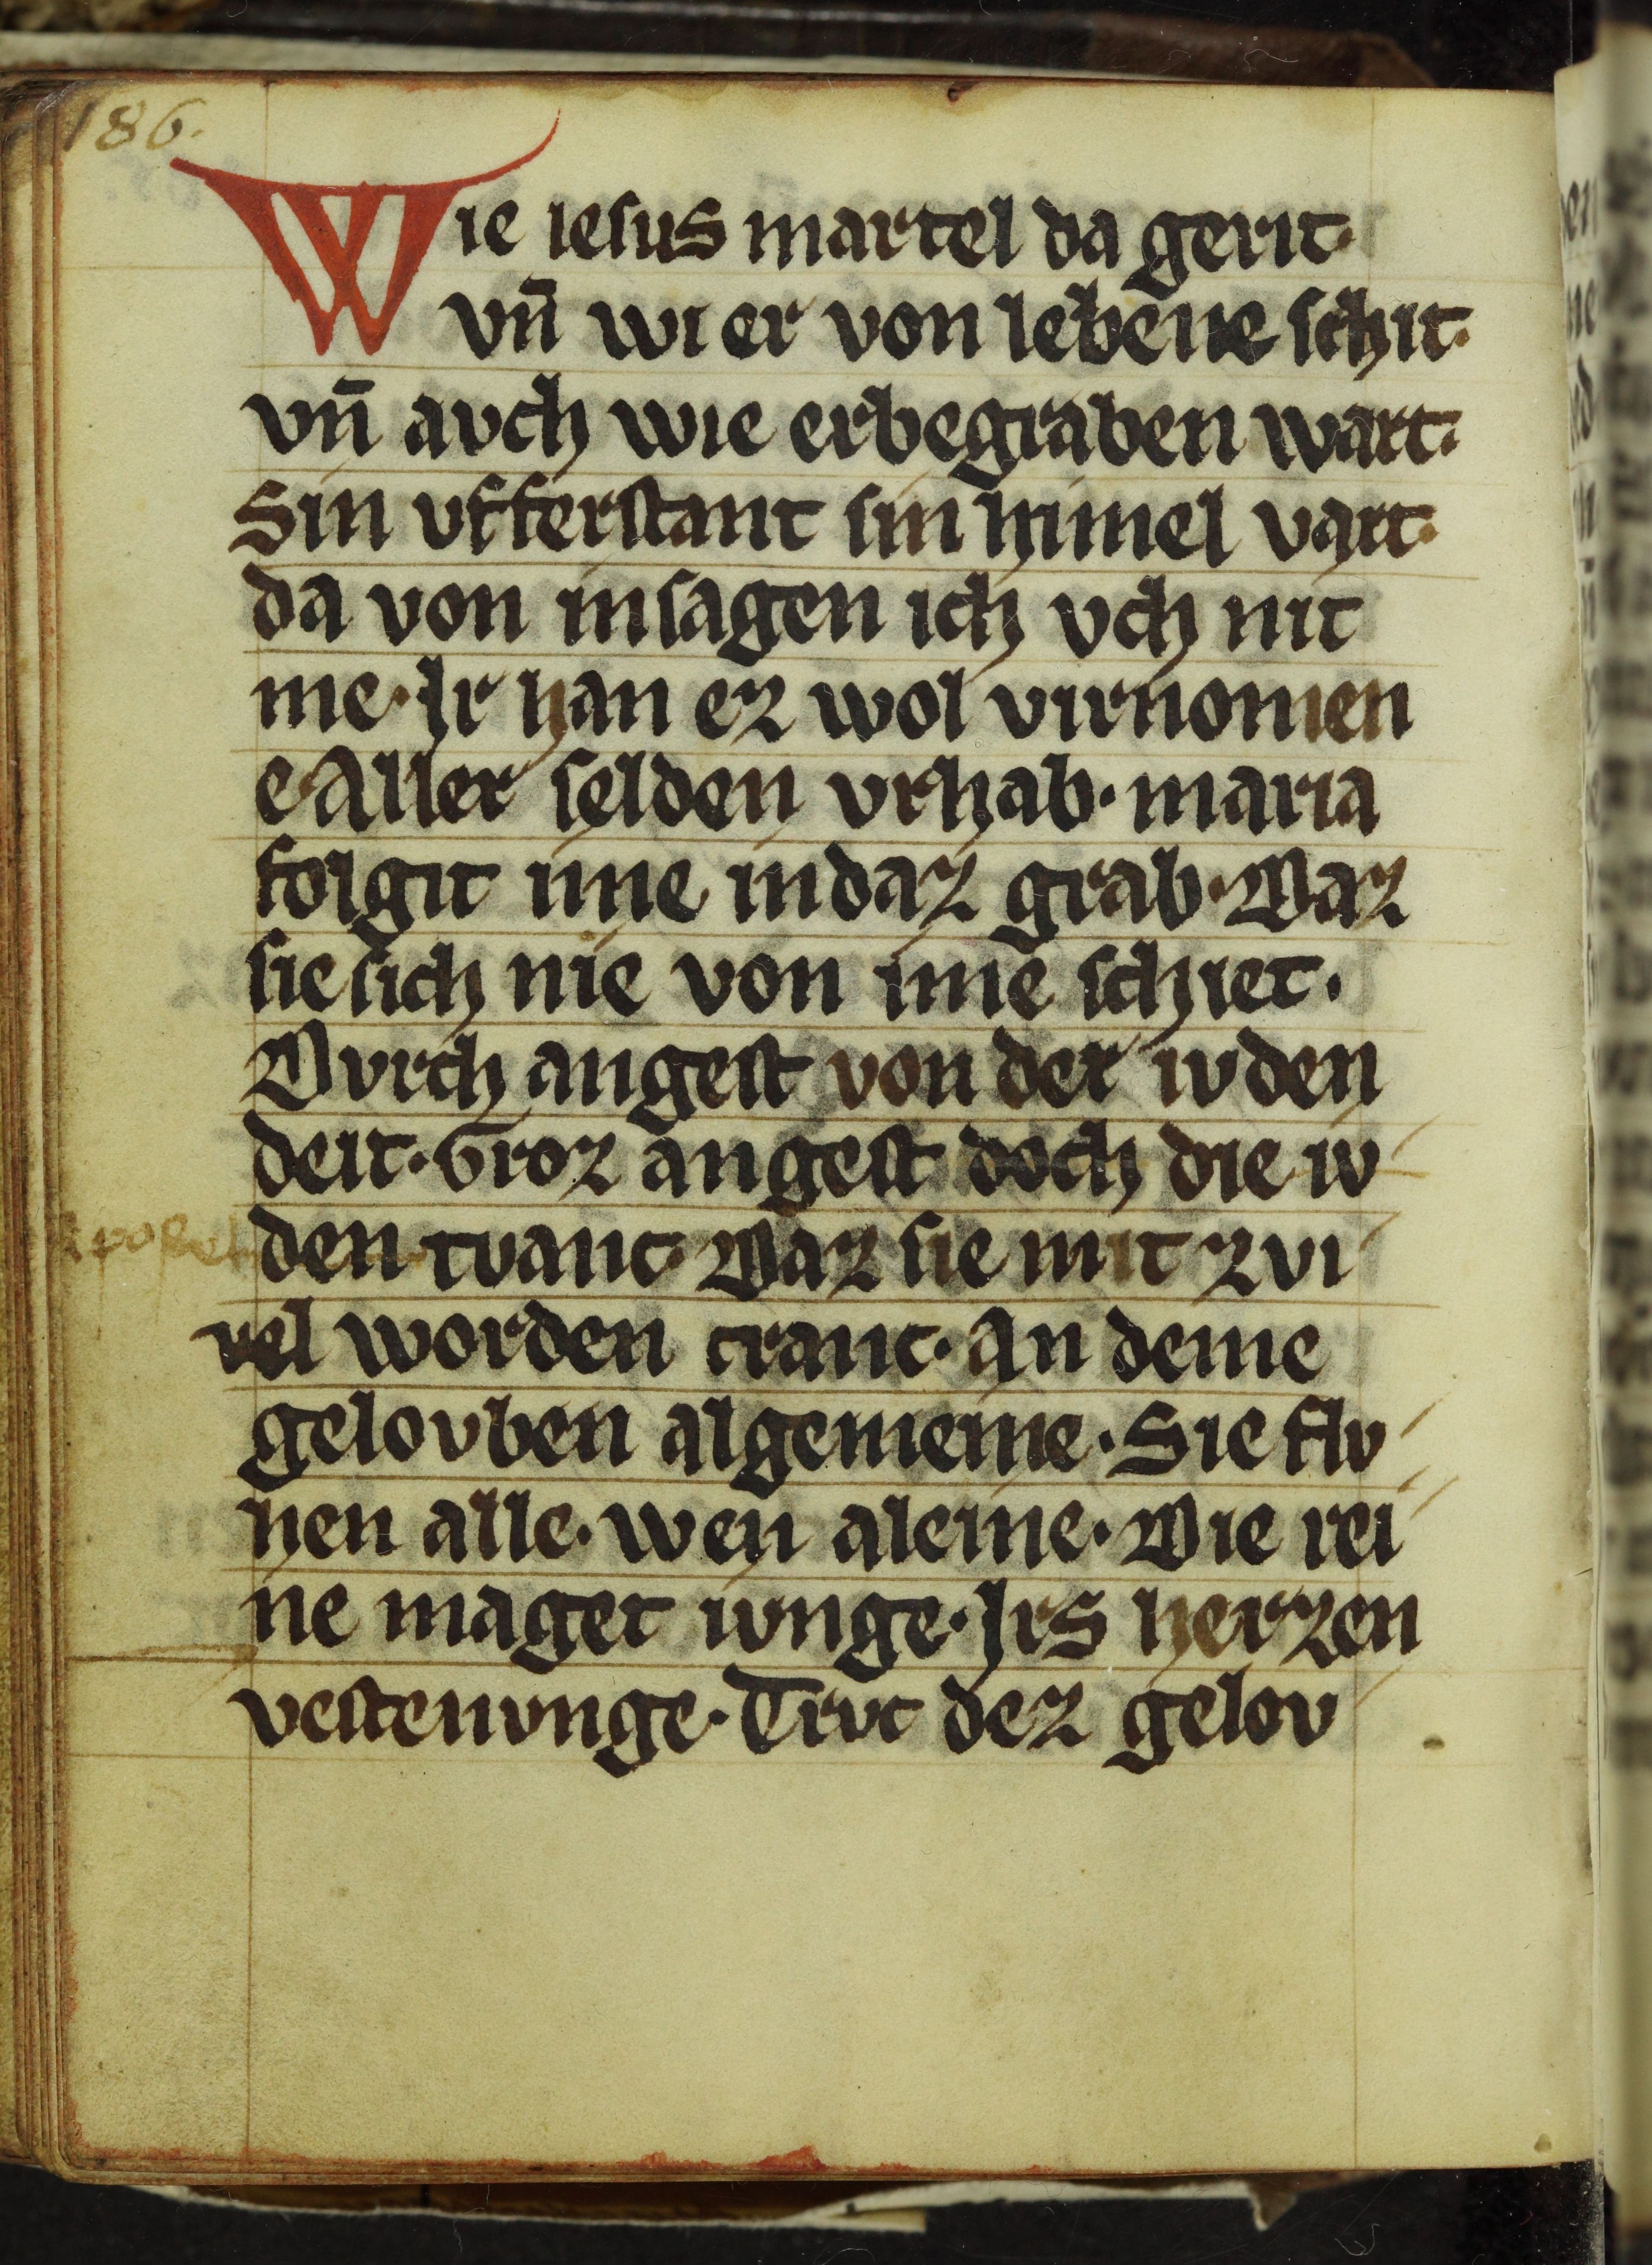 186.
Wie iesus martel da gerit·
vn̄ wi er von lebene schit·
vn̄ avch wie erbegraben wart·
Sin vfferstant sin himel vart·
da von insagen ich vch nit
me· Ir han ez wol virnomen
e Aller selden vrhab· maria
folgit ime indaz grab· Daz
sie sich nie von ime schiet·
Dvrch angest von der ivden
deit· Groz angest doch die iv
den tvanc· Daz sie mit zvi
vel worden cranc· An deme
gelovben algemeine· Sie flv
hen alle· wen aleine· Die rei
ne maget ivnge· Irs herzen
vestenvnge· Trvc dez gelov